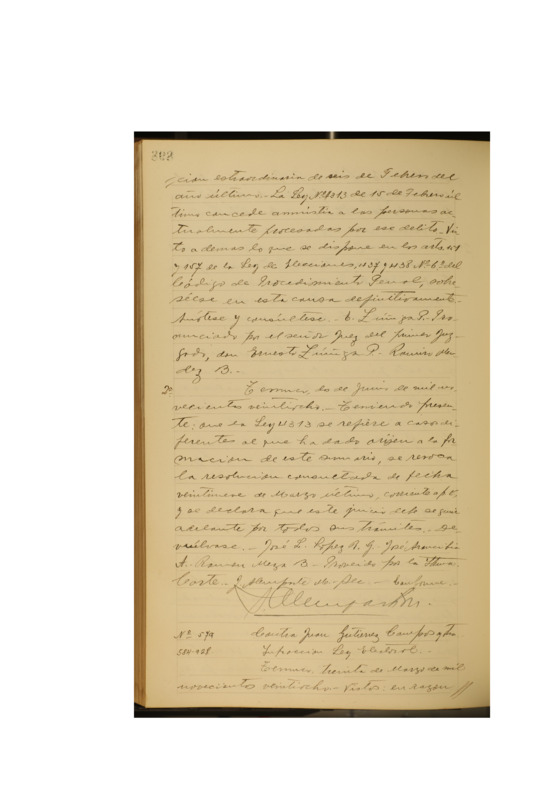 ción extraordinaria de seis de Febrero del
año último. - La Ley Nº 4313 de 15 de Febrero úl
timo concede amnistía a las personas ac
tualmente procesadas por ese delito. Vis
to además lo que se dispone en los arts. 151
y 157 de la Ley de Elecciones, 437 y 438 Nº 6º del
Código de Procedimiento Penal, sobre
sécse en esta causa definitivamente.
Anótese y consúltese. - E. Zúñiga P. - Pro
nunciado por el señor Juez del primer Juz
gado, don Ernesto Zúñiga P. Ramiro Mén
dez B. -
2º Temuco, de Junio de mil no
vecientos veintiocho. - Teniendo presen
te: que la Ley 4313 se refiere a casos di
ferentes al que ha dado orijen a la for
mación de este sumario, se revoca
la resolución consultada de fecha
veintinueve de Marzo último, corriente a f.
y se declara que este juicio debe seguir
adelante por todos sus trámites. - De
vuélvase. - José L. López A. G. José
A. Ramón Meza B - Proveído por la Iltma.
Corte. - J. M. Sec. - Conforme. -
Nº 579 Contra Juan Gutierrez Campos y otro
Infracción Ley Electoral. -
Temuco, treinta de Marzo de mil
novecientos veintiocho - Vistos: en razón //